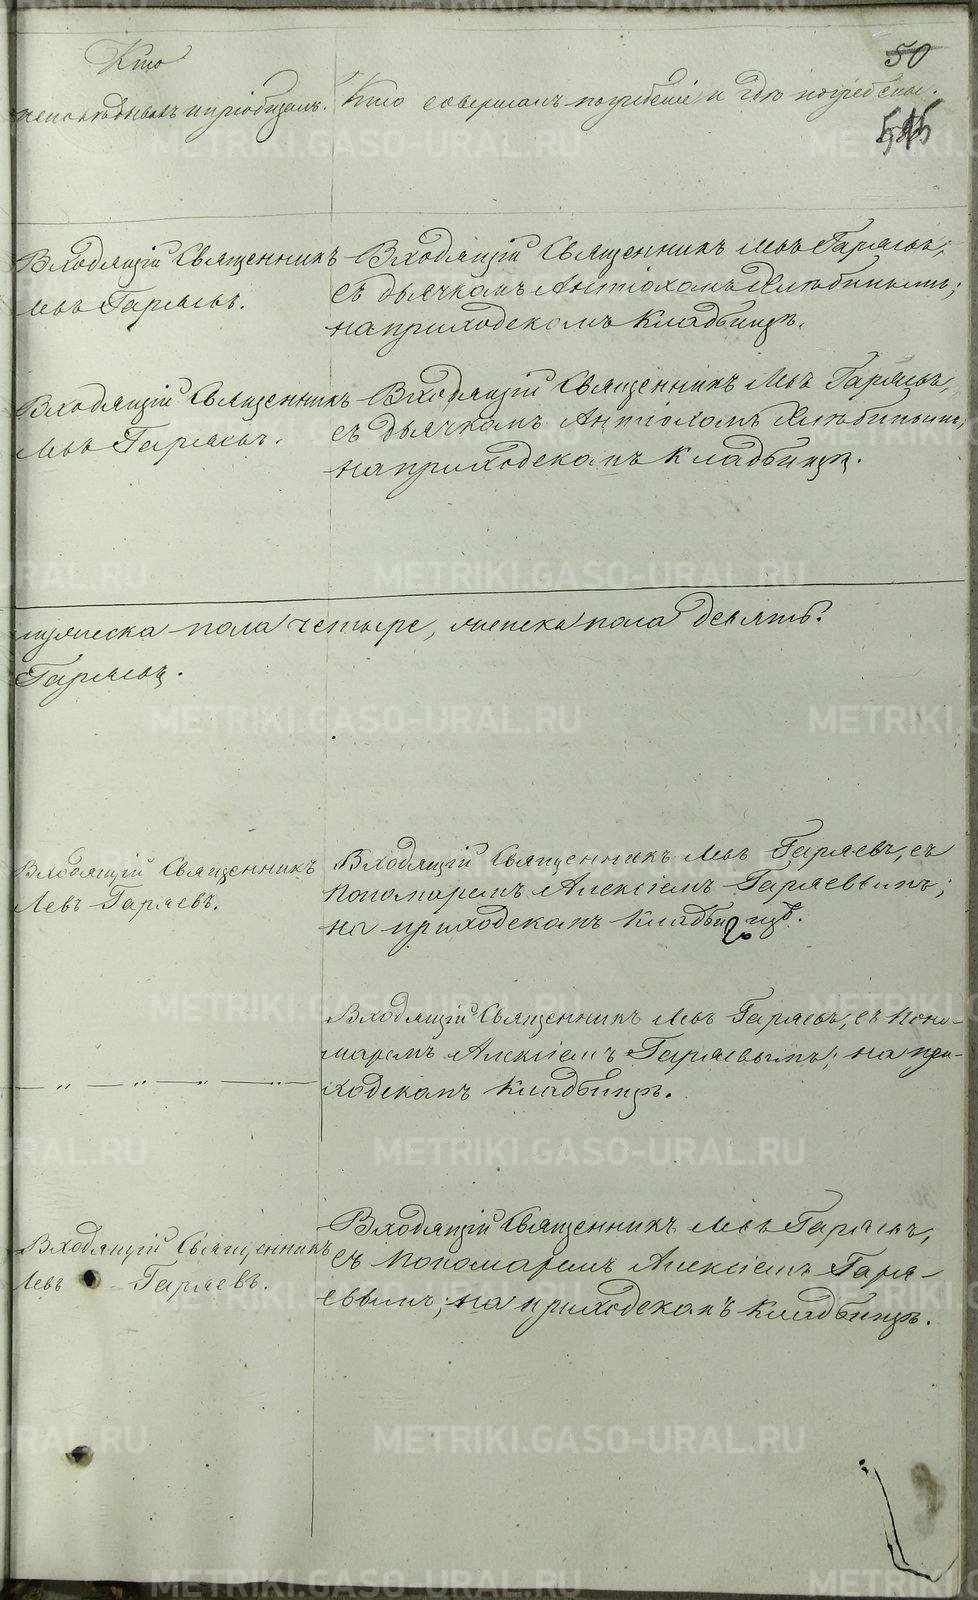 50
Кто
исповѣдывалъ и пріобщалъ.
Кто совершалъ погребеніе и гдѣ погребены.
515
Входящій Священникъ
Левъ Гаряевъ.
Входящій Священникъ Левъ Гаряевъ,
съ дьячкомъ Антіохомъ Хлѣбинымъ;
на приходскомъ кладбищѣ.
Входящій Священникъ
Левъ Гаряевъ.
Входящій Священникъ Левъ Гаряевъ,
съ дьячкомъ Антіохомъ Хлѣбинымъ,
на приходскомъ кладбищѣ.
мужеска пола четыре, женска пола девять.
Гаряевъ.
Входящій Священникъ
Левъ Гаряевъ.
Входящій Священникъ Левъ Гаряевъ, съ
пономаремъ Алексіемъ Гаряевымъ;
на приходскомъ кладбищѣ.
— „ — „ — „ — „ —
Входящій Священникъ Левъ Гаряевъ, съ поно-
маремъ Алексіемъ Гаряевымъ; на при-
ходскомъ кладбищѣ.
Входящій Священникъ
Левъ Гаряевъ.
Входящій Священникъ Левъ Гаряевъ,
съ пономаремъ Алексіемъ Гаря-
евымъ; на приходскомъ кладбищѣ.
METRIKI.GASO-URAL.RU